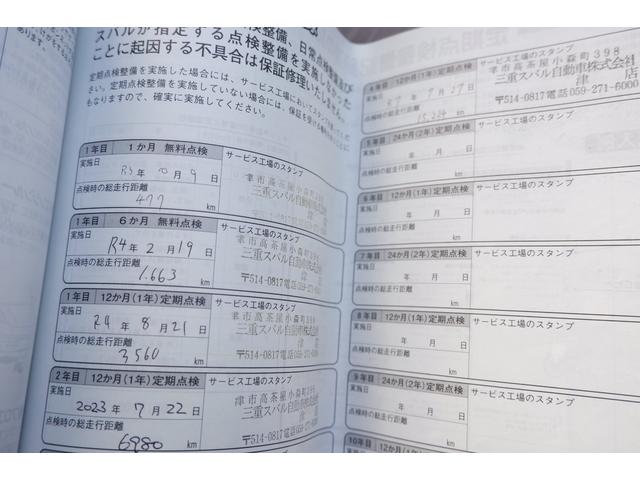 スバルが指定する点検整備を実施しなかった
ことに起因する不具合は保証修理いたしません。
定期点検整備を実施した場合には、サービス工場において
さい。定期点検整備を実施していない場合には、保証を受ける
もなりますので、確実に実施してください。
1年目 1か月 無料点検
サービス工場のスタンプ
実施日
R3年 10月 9日
点検時の総走行距離
477 km
津市高茶屋小森町398
三重スバル自動車株式会社
津店
1年目 6か月 無料点検
サービス工場のスタンプ
実施日
R4年 2月 19日
点検時の総走行距離
1,663 km
津市高茶屋小森町398
三重スバル自動車株式会社
津店
〒514-0817電話059-271-6000
1年目 12か月(1年)定期点検
サービス工場のスタンプ
実施日
R4年 8月 21日
点検時の総走行距離
3,560 km
津市高茶屋小森町398
三重スバル自動車株式会社
津店
〒514-0817電話059-271-6000
2年目 12か月(1年)定期点検
サービス工場のスタンプ
実施日
2023年 7月 22日
点検時の総走行距離
6980 km
津市高茶屋小森町398
三重スバル自動車株式会社
津店
〒514-0817電話059-271-6000
定期点検整備
4年目 12か月(1年)定期点検
サービス工場のスタンプ
R7年 9月 27日
津市高茶屋小森町398
三重スバル自動車株式会社
津店
〒514-0817電話059-271-6000
5年目 24か月(2年)定期点検
サービス工場のスタンプ
実施日
年 月 日
点検時の総走行距離
km
6年目 12か月(1年)定期点検
サービス工場のスタンプ
実施日
年 月 日
点検時の総走行距離
km
7年目 24か月(2年)定期点検
サービス工場のスタンプ
実施日
年 月 日
点検時の総走行距離
km
8年目 12か月(1年)定期点検
サービス工場のスタンプ
実施日
年 月 日
点検時の総走行距離
km
9年目 24か月(2年)定期点検
サービス工場のスタンプ
実施日
年 月 日
点検時の総走行距離
km
10年目 12か月(1年)定期点検